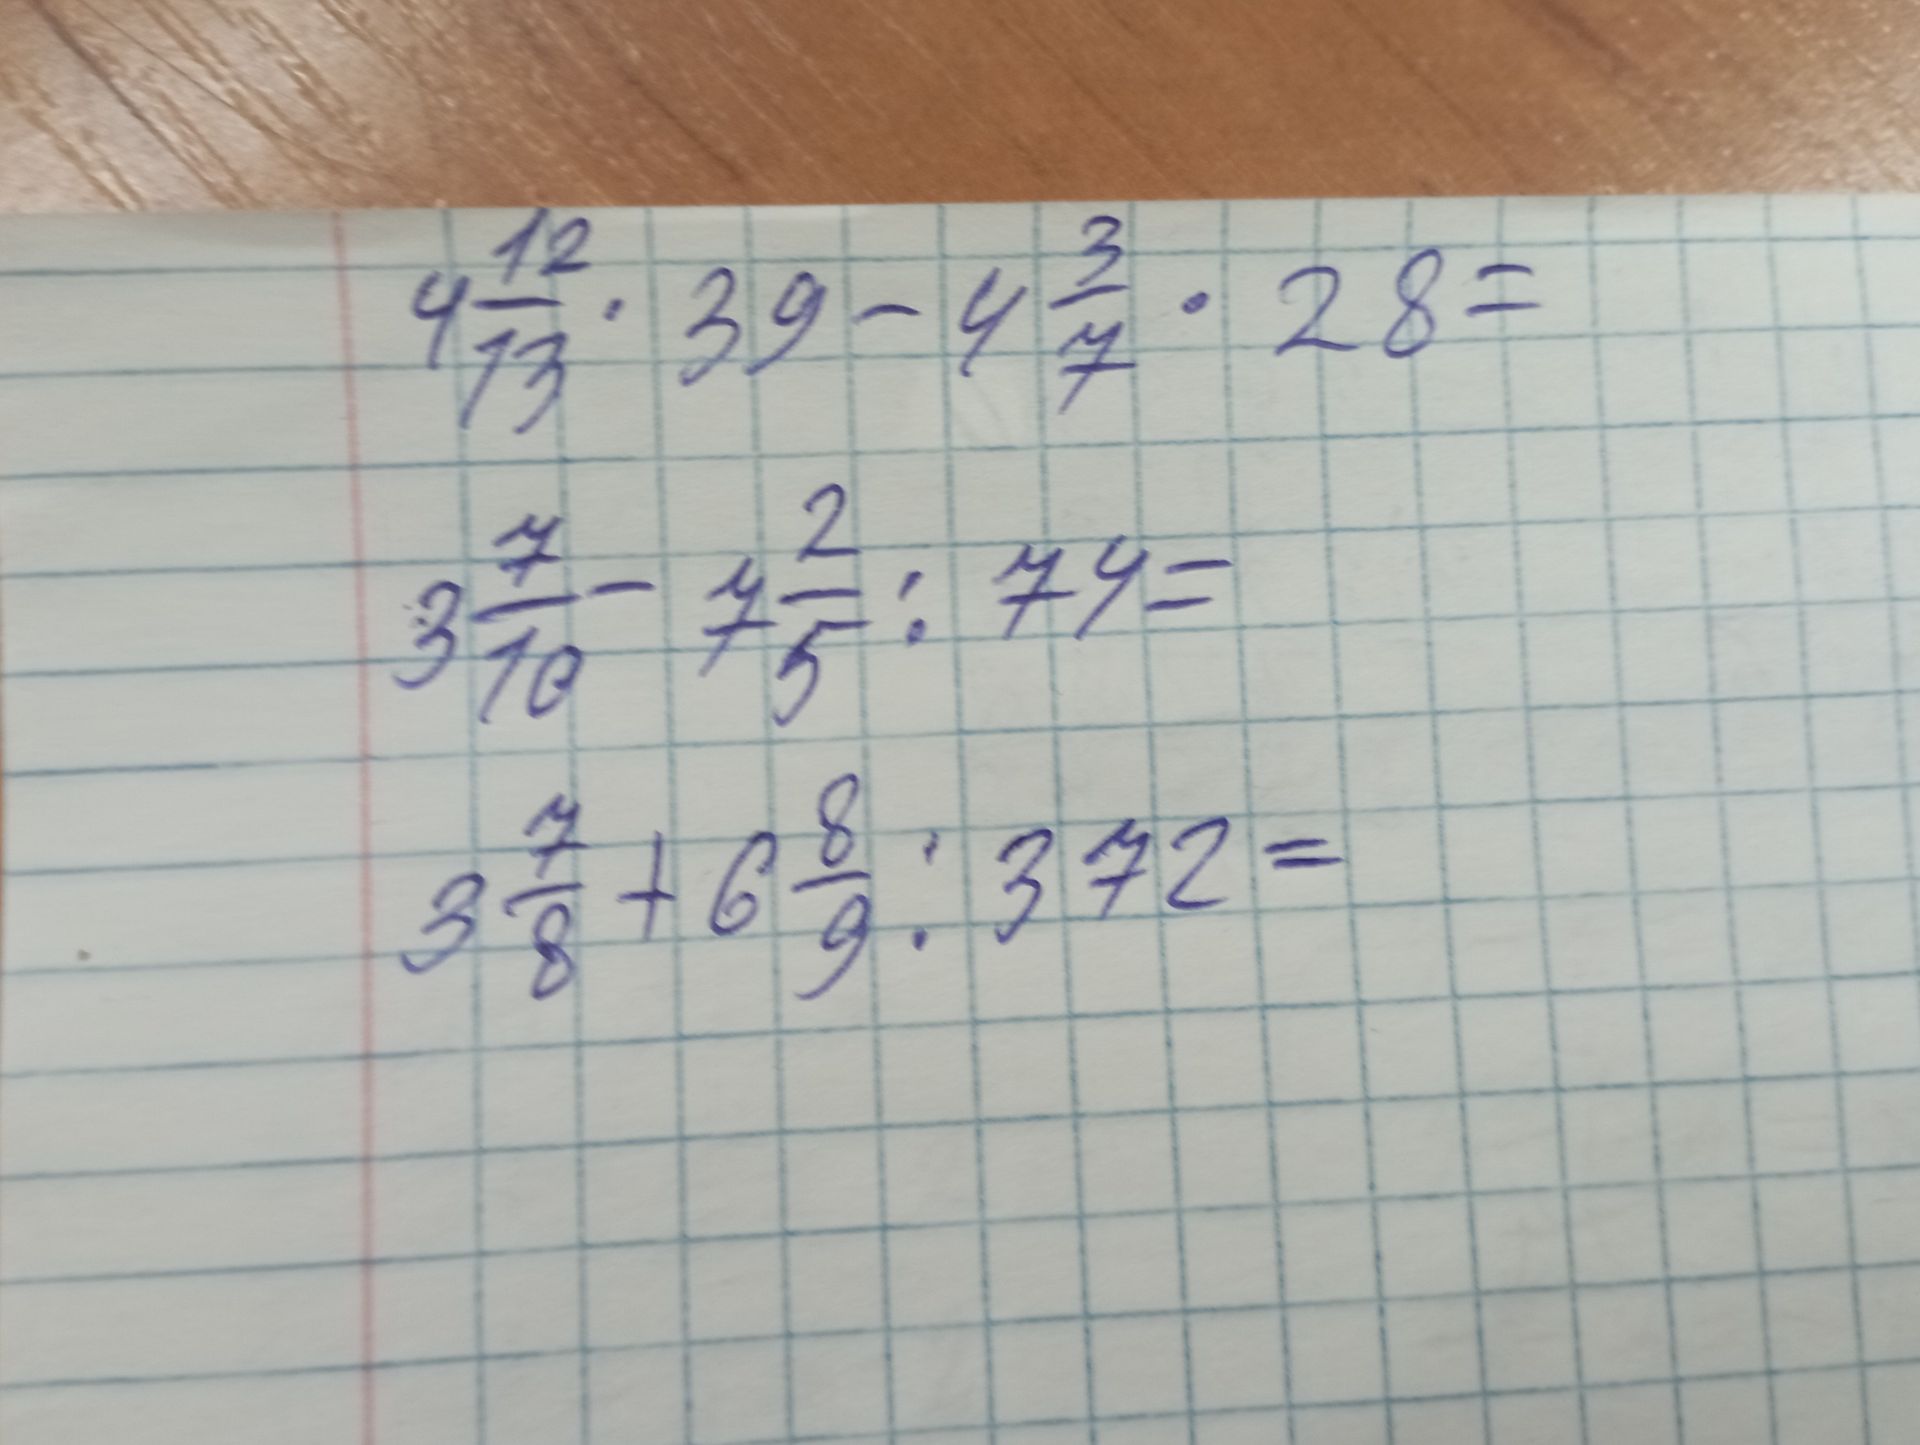 4 12/13 · 39 - 4 3/7 · 28 =
3 7/10 - 7 2/5 : 74 =
3 7/8 + 6 8/9 : 372 =